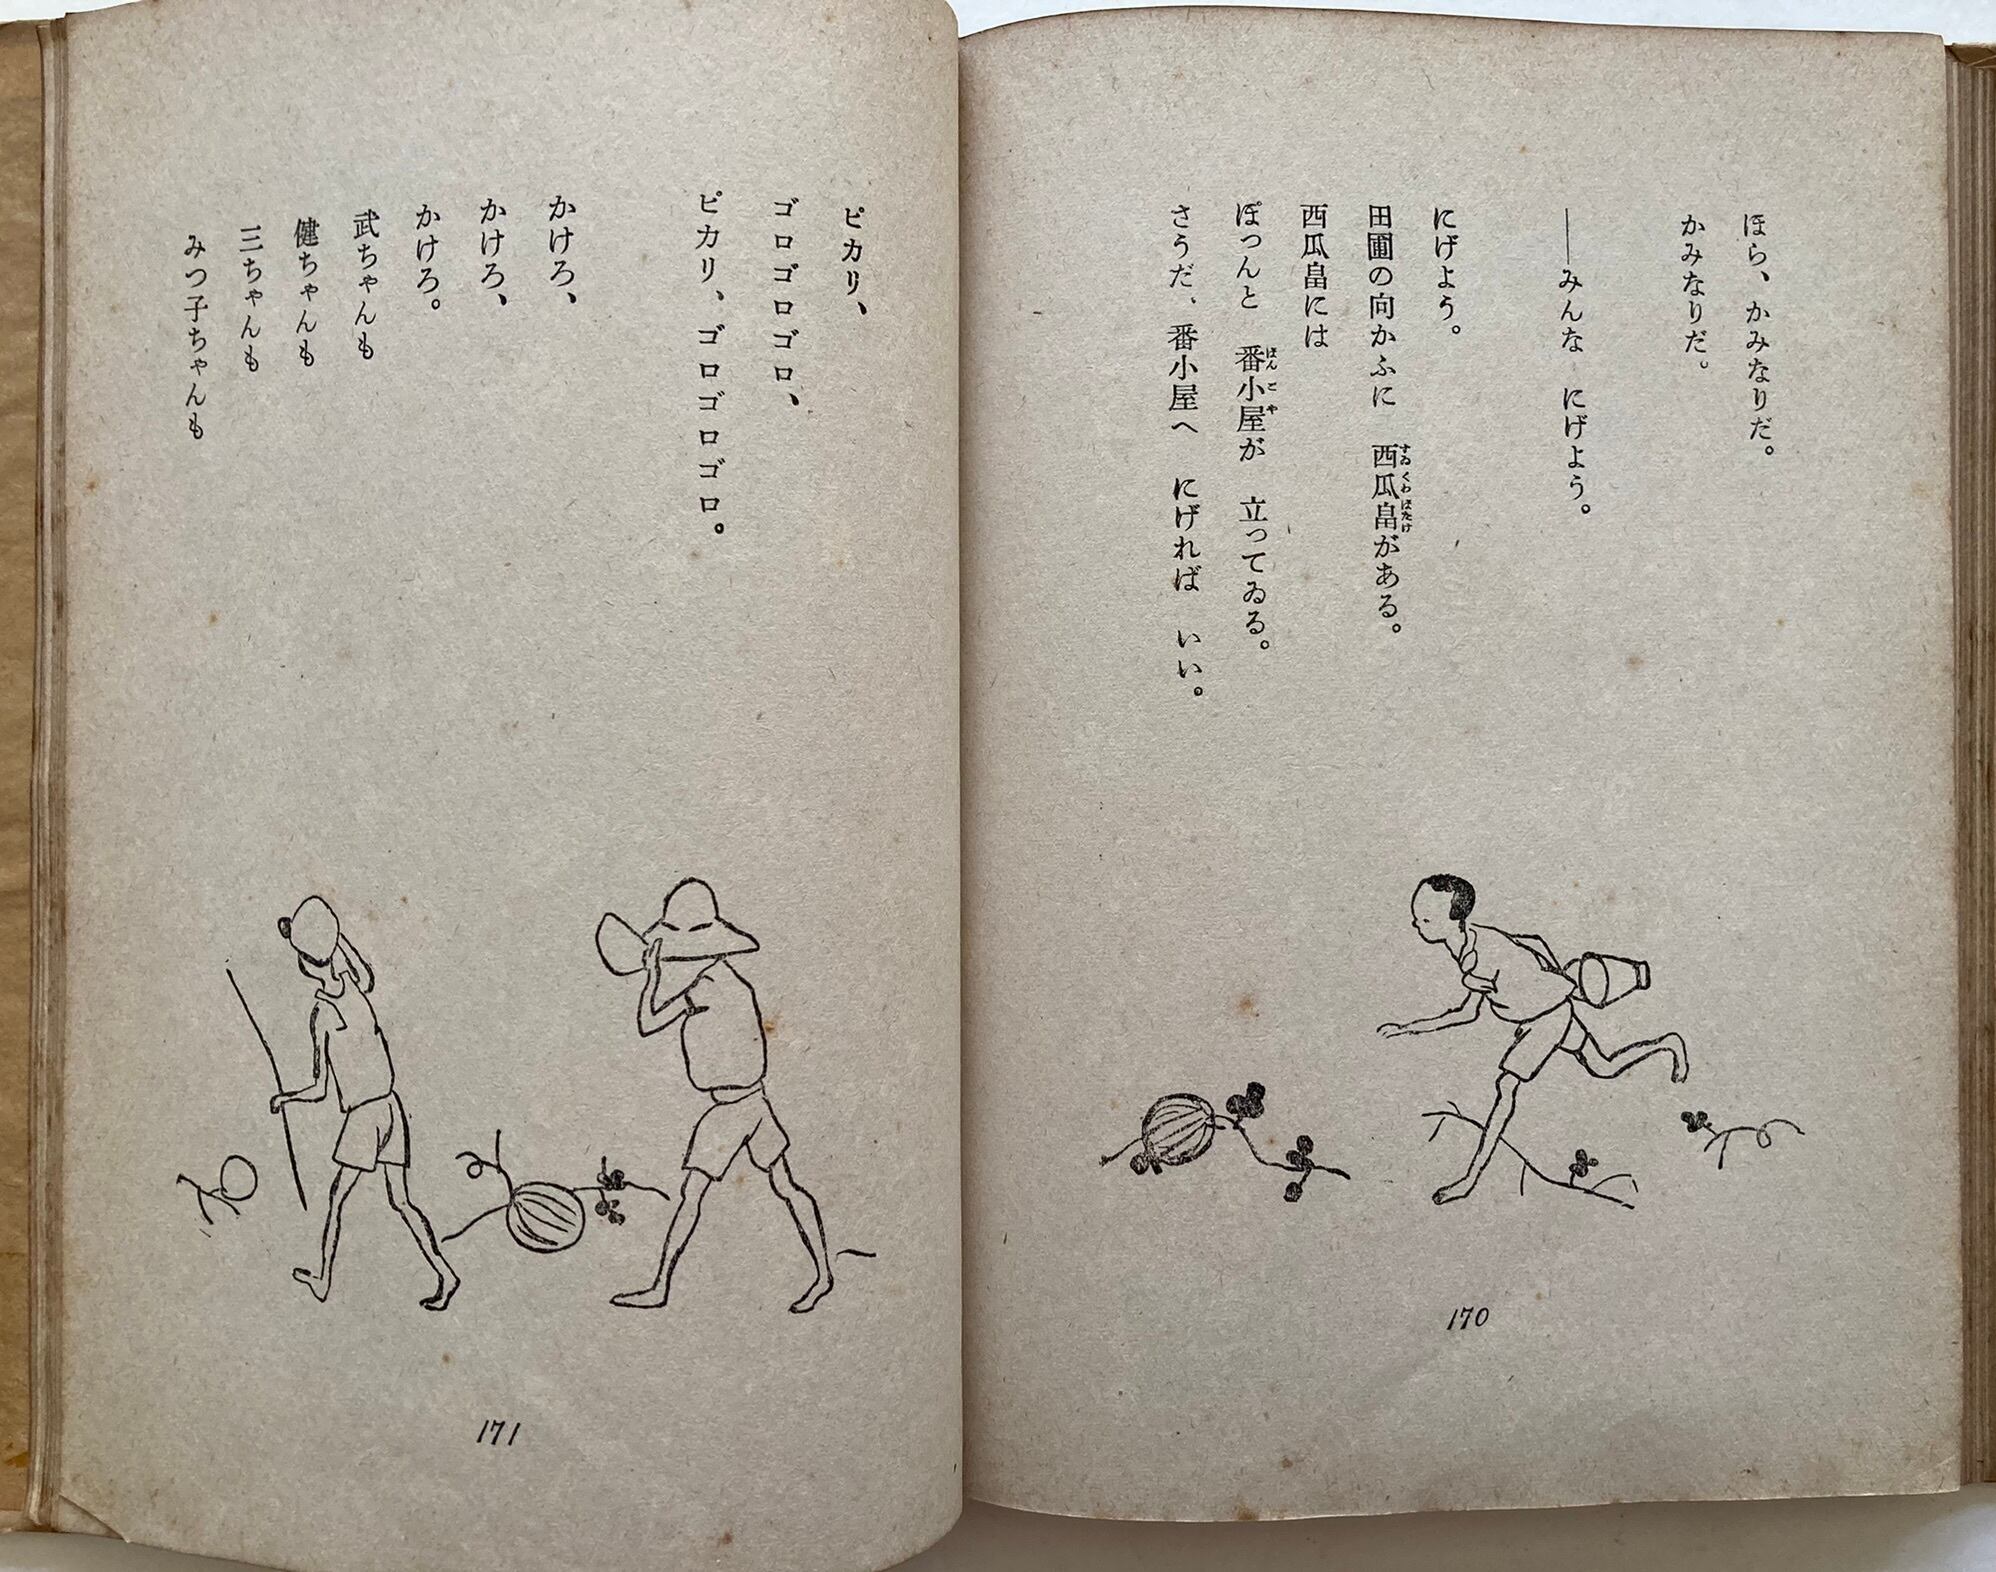 ほら、かみなりだ。
かみなりだ。
──みんな　にげよう。
にげよう。
田圃の向かふに　西瓜畠がある。
西瓜畠には
ぽつんと　番小屋が　立つてゐる。
さうだ、番小屋へ　にげれば　いい。
170
ピカリ、
ゴロゴロゴロ、
ピカリ、ゴロゴロゴロ。
かけろ、
かけろ、
かけろ。
武ちゃんも
健ちゃんも
三ちゃんも
みつ子ちゃんも
171